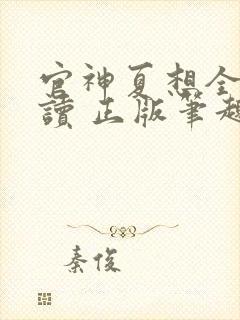 官神夏想全
讀 正版筆趣
秦俊